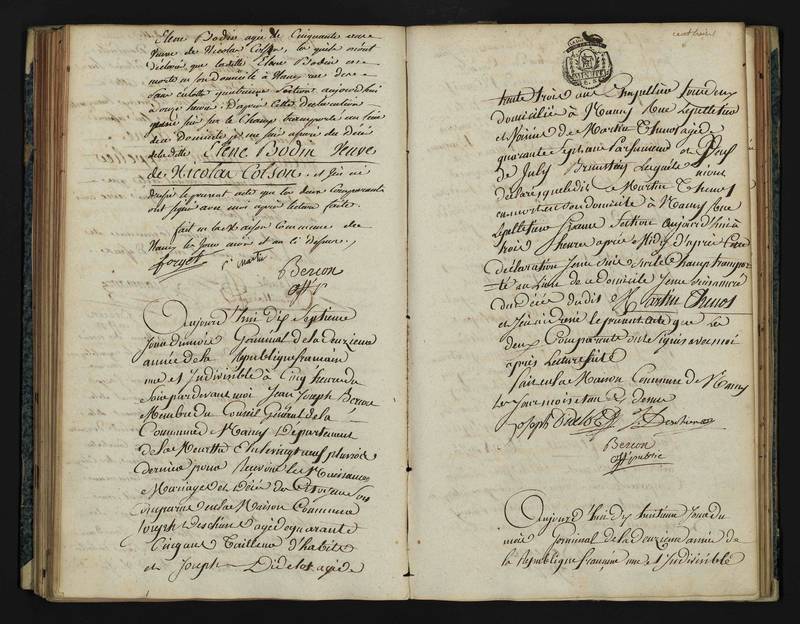 Elene Bodin agée de Cinquante
veuve de Nicolas Colson, lesquels m'ont
déclaré que ladite Elene Bodin est
morte en son domicile à Nancy rue de
Sans culotte quatrieme Section aujourd'hui
à onze heures D'après Cette déclaration
je me suis sur le Champ transporté au lieu
de ce Domicile je me suis assuré du décès
de ladite Elene Bodin Veuve
de Nicolas Colson. et j'en ai
dressé le present acte que les deux Comparants
ont signé avec moi après lecture faite.
fait en la Maison Commune de
Nancy les Jour mois et an ci dessus.
forget Martin
Berson
off p
Aujourd'hui dix Septieme
Jour du mois Germinal de la deuxieme
année de la Republique francaise
une et Indivisible à Cinq heures du
Soir pardevant moi Jean Joseph Berson
Membre du Conseil Général de la
Commune de Nancy Département
de la Meurthe Elu le vingt neuf pluviôse
dernier pour recevoir les Naissances
Mariages et Décès des Citoyens
comparu en la Maison Commune
Joseph agé de quarante
Cinq ans Tailleur d'habits
et Joseph Didelot agé de
trente trois ans
domiciliés à Nancy Rue Lepelletier
et Voisins de Martin Thenot agé de
quarante Sept ans Parfumeur et
de July lesquels m'ont
déclaré que ledit Martin Thenot
est mort en son domicile à Nancy Rue
Lepelletier Section aujourd'hui à
trois heures après Midy d'après Cette
déclaration Je me suis sur le Champ transporté
au Lieu de ce Domicile Je me suis assuré
du décès dudit Martin Thenot
et J'en ai dressé le présent acte que Les
deux Comparants ont Signés avec moi
après Lecture faite
fait en la Maison Commune de Nancy
les Jour mois et an Cy dessus
Joseph Didelot
Berson
off public
Aujourd'hui dix huitieme Jour du
mois Germinal de la deuxieme année de
la République française une et Indivisible